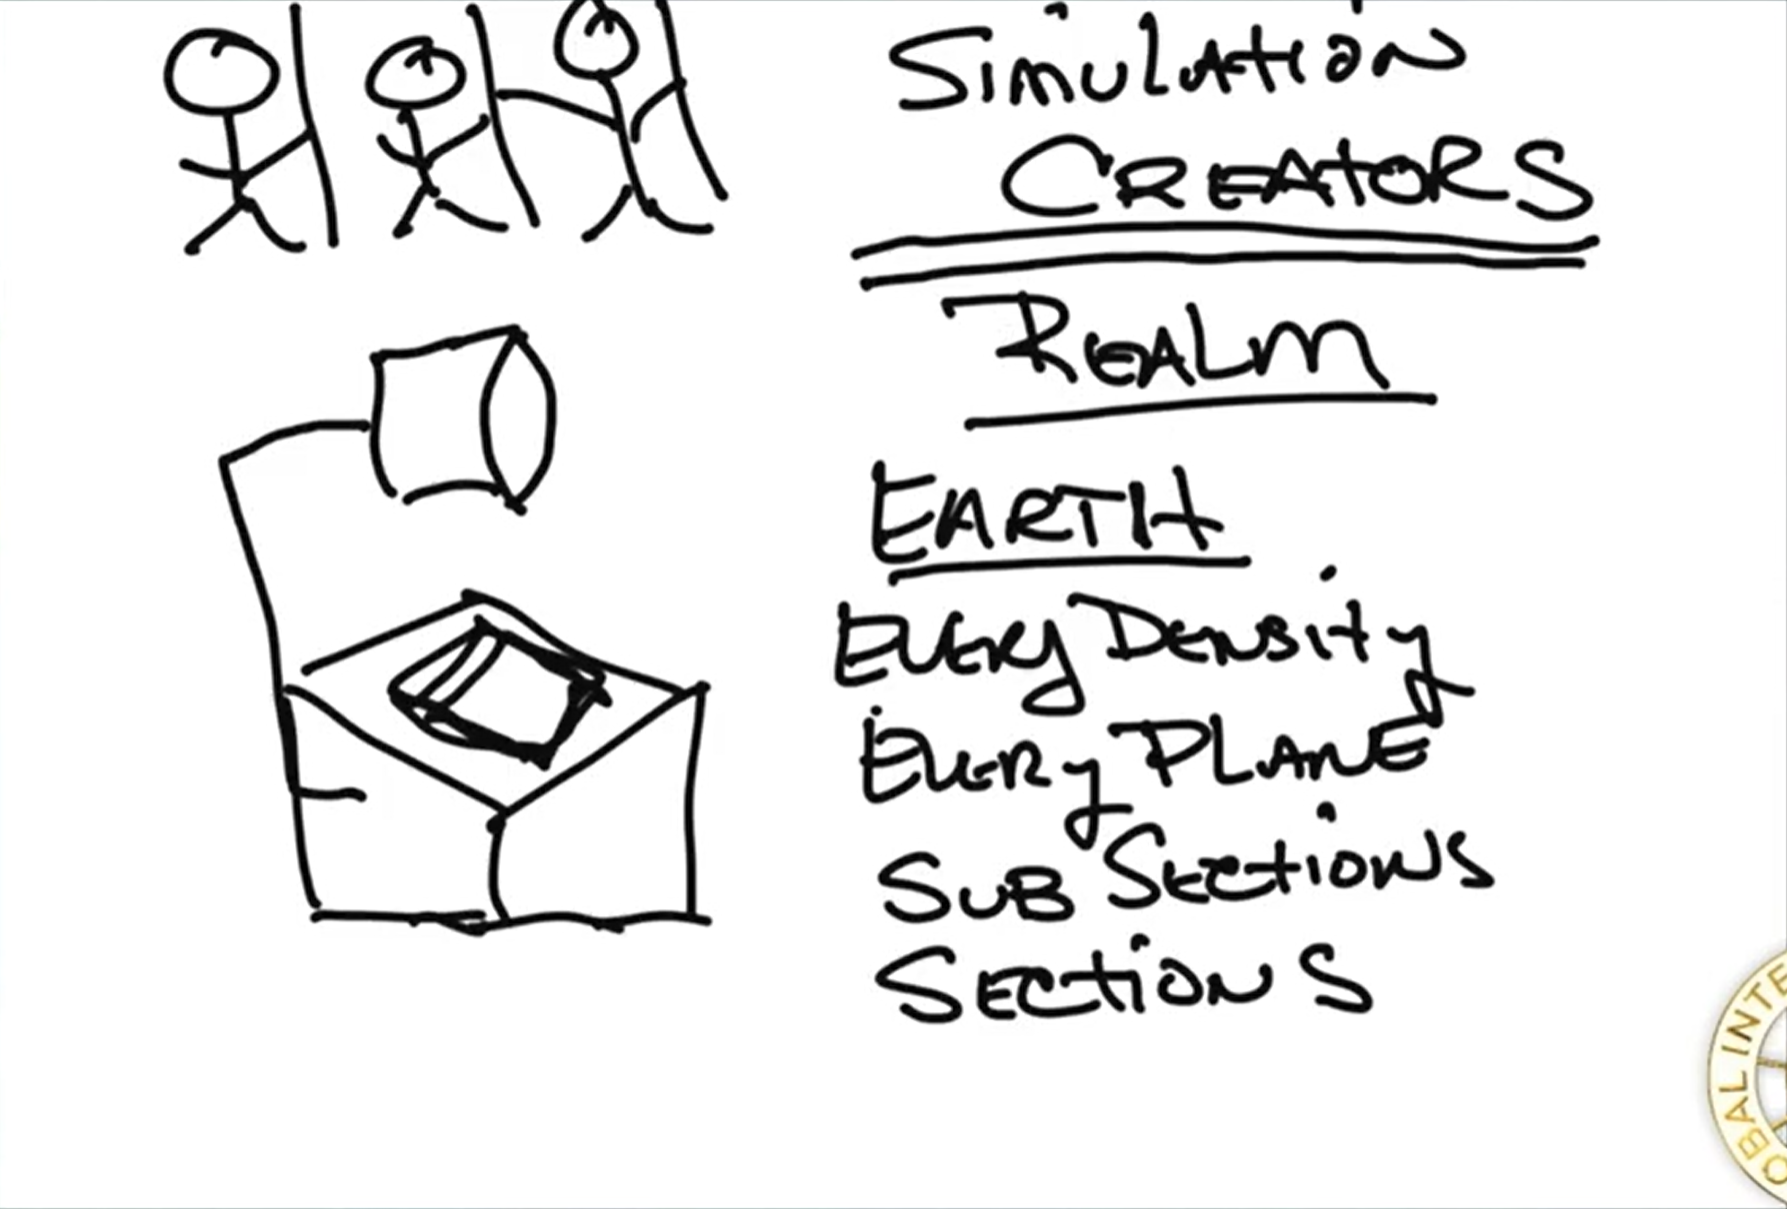 Simulation
CREATORS
REALM
EARTH
EVERY DENSity
EVERY PLANE
SUB SECtioNS
SECtioN S
OBAL INTE